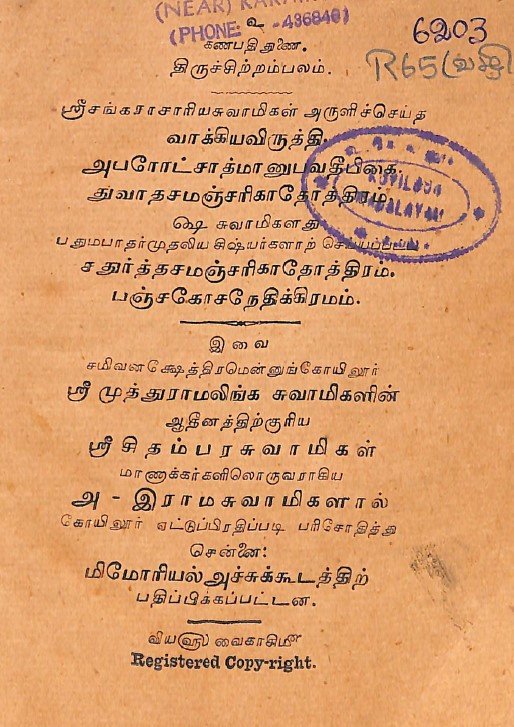 (NEAR)
(PHONE: -436840)
6203
R65
உ
கணபதி துணை.
திருச்சிற்றம்பலம்.
ஸ்ரீசங்கராசாரியசுவாமிகள் அருளிச்செய்த
வாக்கியவிருத்தி.
அபரோட்சாத்மானுபவதீபிகை.
துவாதசமஞ்சரிகாதோத்திரம்.
ஷை சுவாமிகளது
பதுமபாதர்முதலிய சிஷ்யர்களாற் செய்யப்பட்ட
சதுர்த்தசமஞ்சரிகாதோத்திரம்.
பஞ்சகோசநேதிக்கிரமம்.
இவை
சமிவனக்ஷேத்திரமென்னுங்கோயிலூர்
ஸ்ரீ முத்துராமலிங்க சுவாமிகளின்
ஆதீனத்திற்குரிய
ஸ்ரீசிதம்பரசுவாமிகள்
மாணாக்கர்களிலொருவராகிய
அ - இராமசுவாமிகளால்
கோயிலூர் ஏட்டுப்பிரதிப்படி பரிசோதித்து
சென்னை:
மிமோரியல்அச்சுக்கூடத்திற்
பதிப்பிக்கப்பட்டன.
விய௵ வைகாசிமீ
Registered Copy-right.